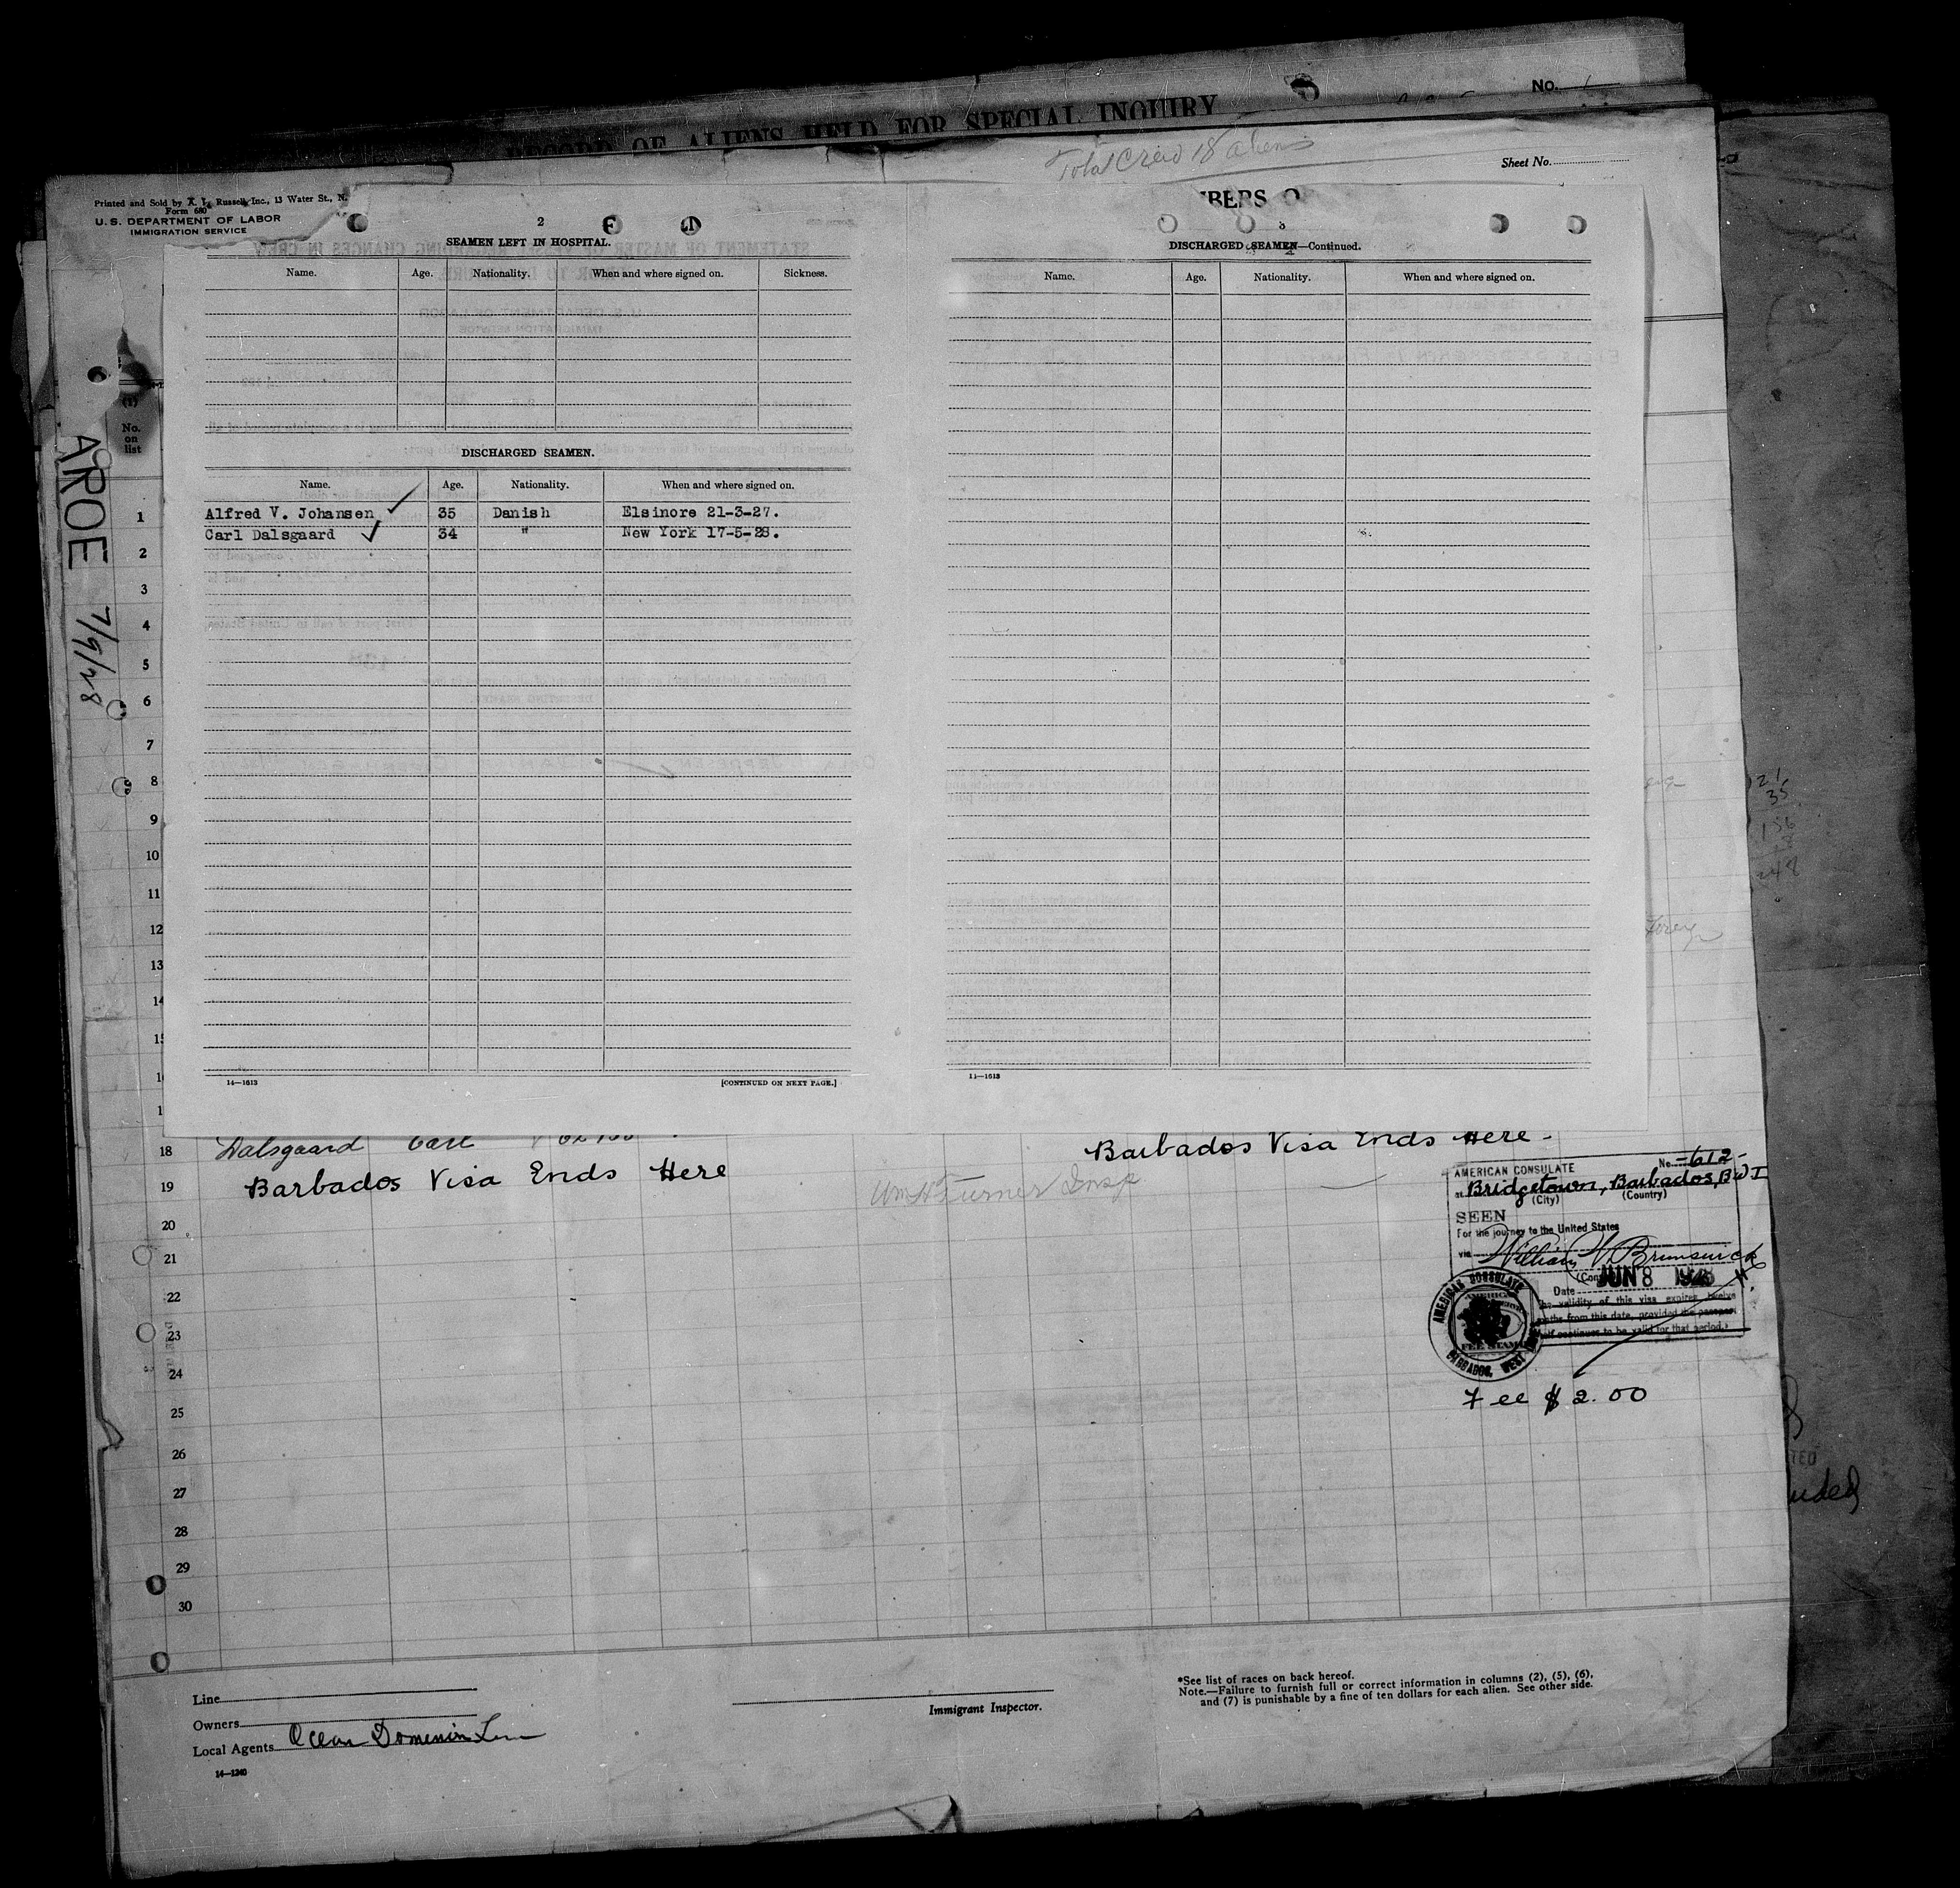 No.
RECORD OF ALIENS HELD FOR SPECIAL INQUIRY
Total Crew 18 aliens
Sheet No.
Printed and Sold by A. L. Russell, Inc., 13 Water St., N.
Form 680
U. S. DEPARTMENT OF LABOR
IMMIGRATION SERVICE
2
SEAMEN LEFT IN HOSPITAL.
Name. Age. Nationality. When and where signed on. Sickness.
DISCHARGED SEAMEN.
Name. Age. Nationality. When and where signed on.
Alfred V. Johansen 35 Danish Elsinore 21-3-27.
Carl Dalsgaard 34 " New York 17-5-28.
14—1613 [CONTINUED ON NEXT PAGE.]
BERS O
3
DISCHARGED SEAMEN—Continued.
Name. Age. Nationality. When and where signed on.
14—1613
AROE 7/9/28
(1)
No.
on
list
1
2
3
4
5
6
7
8
9
10
11
12
13
14
15
1
1
18 Dalsgaard Carl
19 Barbados Visa Ends Here
20
21
22
23
24
25
26
27
28
29
30
Barbados Visa Ends Here -
Wm H Turner Insp
AMERICAN CONSULATE No. 612-
at Bridgetown, Barbados, B W I
(City) (Country)
SEEN
For the journey to the United States
via William W. Brunswick
JUN 8 1928
Date
The validity of this visa expires twelve
months from this date, provided the passport
itself continues to be valid for that period.
AMERICAN CONSULATE
FEE STAMP
BARBADOS, WEST
Fee $ 2.00
21
35
156
248
Foreign
TED
uded
Line
Owners
Local Agents Ocean Dominion Line
14—1240
Immigrant Inspector.
*See list of races on back hereof.
Note.—Failure to furnish full or correct information in columns (2), (5), (6),
and (7) is punishable by a fine of ten dollars for each alien. See other side.